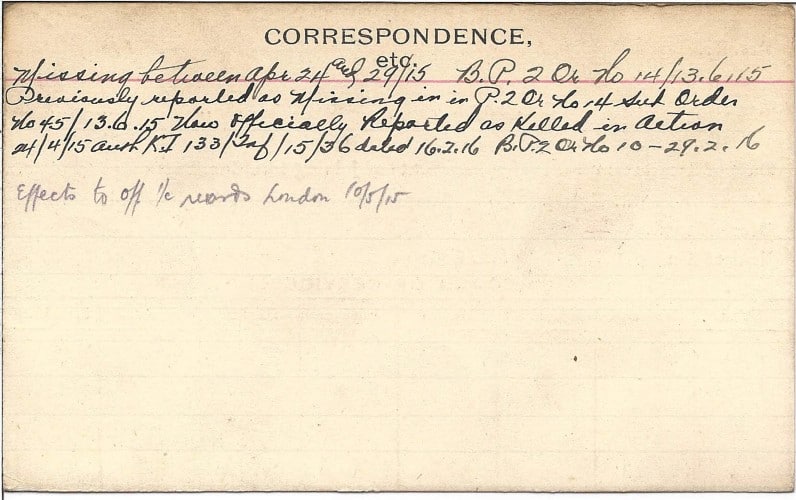 CORRESPONDENCE,
etc.
Missing between Apr 24 and 29/15 B.P. 2 Or No 14/13.6.15
Previously reported as Missing in in P.2 Or No 14 Sub Order
No 45/13.6.15 Now Officially Reported as Killed in Action
24/4/15 Auth K.I 133/Inf/15/36 dated 16.2.16 B.P.2 Or No 10-29.2.16
Effects to off i/c records London 10/5/15